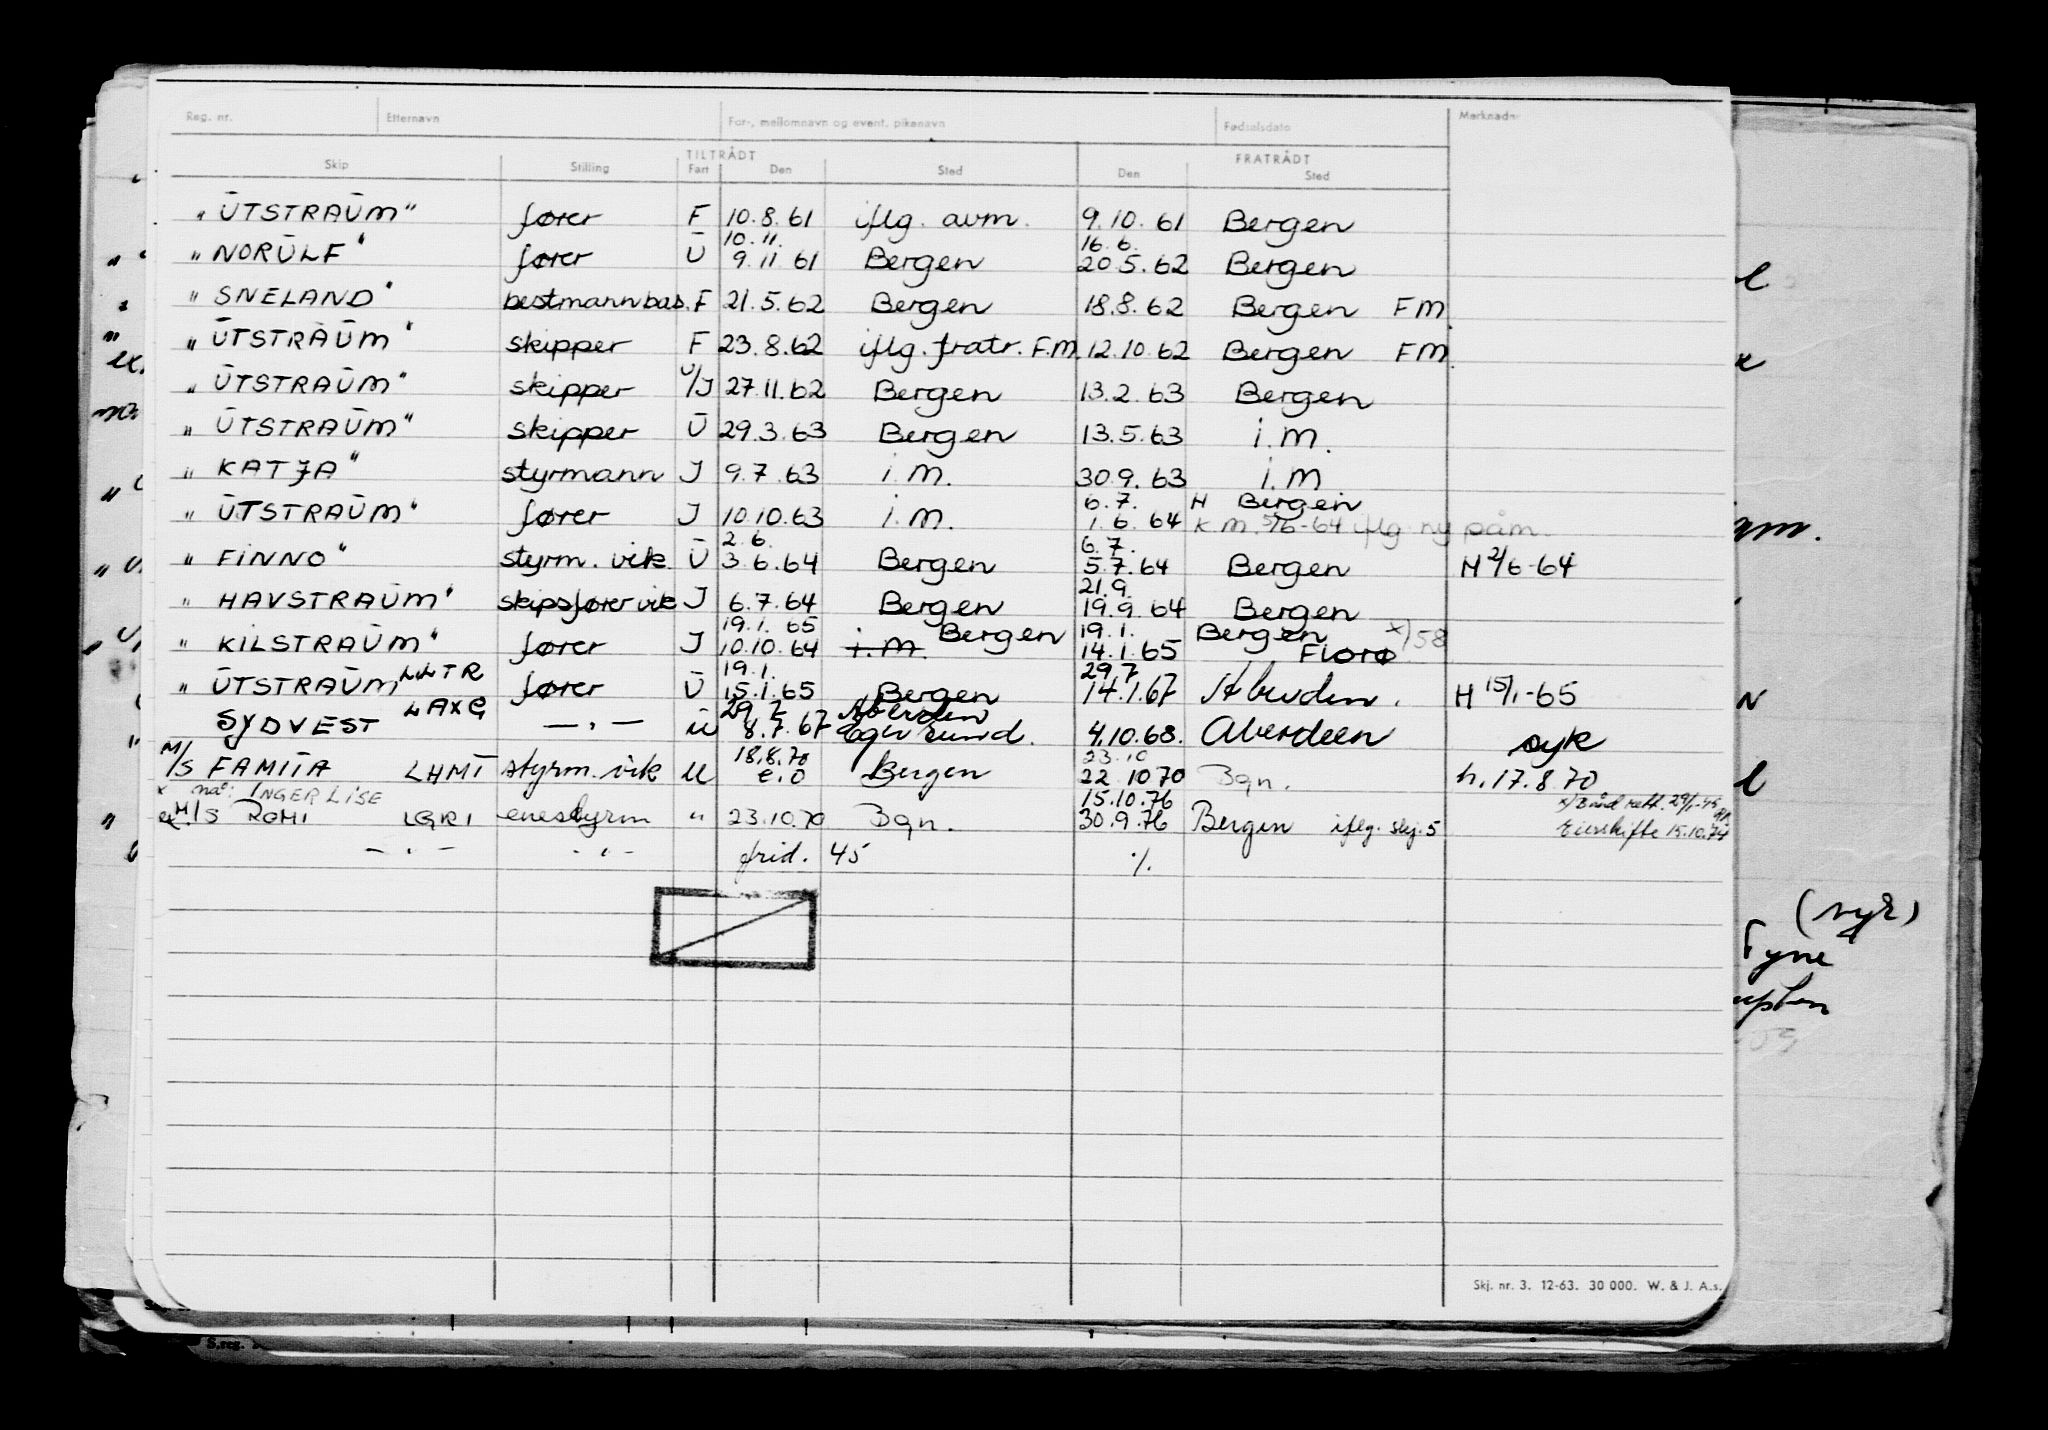 Reg. nr. Etternavn For-, mellomnavn og event. pikenavn Fødselsdato Merknader
TILTRÅDT FRATRÅDT
Skip Stilling Fart Den Sted Den Sted
"UTSTRAUM" fører F 10.8.61 iflg. avm. 9.10.61 Bergen
10.11. 16.6.
"NORULF" fører U 9.11.61 Bergen 20.5.62 Bergen
"SNELAND" bestmann bas. F 21.5.62 Bergen 18.8.62 Bergen FM.
"UTSTRAUM" skipper F 23.8.62 iflg. fratr. F.M. 12.10.62 Bergen FM
"UTSTRAUM" skipper U/I 27.11.62 Bergen 13.2.63 Bergen
"UTSTRAUM" skipper U 29.3.63 Bergen 13.5.63 i.M.
"KATJA" styrmann I 9.7.63 i.M. 30.9.63 i.M
6.7. H Bergen
"UTSTRAUM" fører I 10.10.63 i.M. 1.6.64 K.M. 5/6-64 iflg. ny påm.
2.6. 6.7.
"FINNO" styrm. vik. U 3.6.64 Bergen 5.7.64 Bergen H 2/6-64
21.9.
"HAVSTRAUM" skipsfører vik I 6.7.64 Bergen 19.9.64 Bergen
19.1.65 Bergen 19.1. Bergen x)58
"KILSTRAUM" fører I 10.10.64 i.M. 14.1.65 Florø
19.1. 29.7
"UTSTRAUM LLTR fører U 15.1.65 Bergen 14.1.67 Aberdeen. H 15/1-65
29.7 Aberdeen
SYDVEST LAXG — " — U 8.7.67 Egersund. 4.10.68. Aberdeen syk
18.8.70 23.10
M/S FAMITA LHMT styrm. vik U e.o Bergen 22.10.70 Bgn. h. 17.8.70
x nå: INGER LISE 15.10.76
ex M/S ROMI LGRI enestyrm " 23.10.70 Bgn. 30.9.76 Bergen iflg. skj. 5 Eierskifte 15.10.74
— " — — " — frid. 45 ./.
(syk)
Tyne
Skj. nr. 3. 12-63. 30 000. W. & J. A.s.
S.reg.